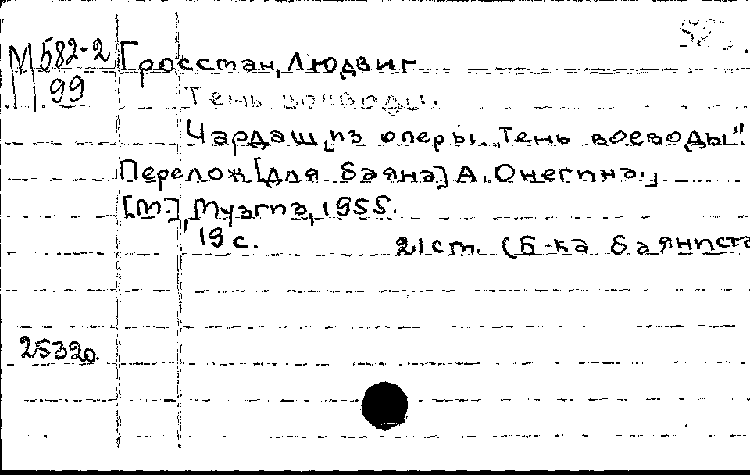 М 582-2
99
Гроссман, Людвиг
Тень воеводы.
Чардаш из оперы "Тень воеводы".
Перелож. [для баяна] А. Онегина.
[М.], Музгиз, 1955.
19 с. 21 см. (Б-ка баяниста
25320